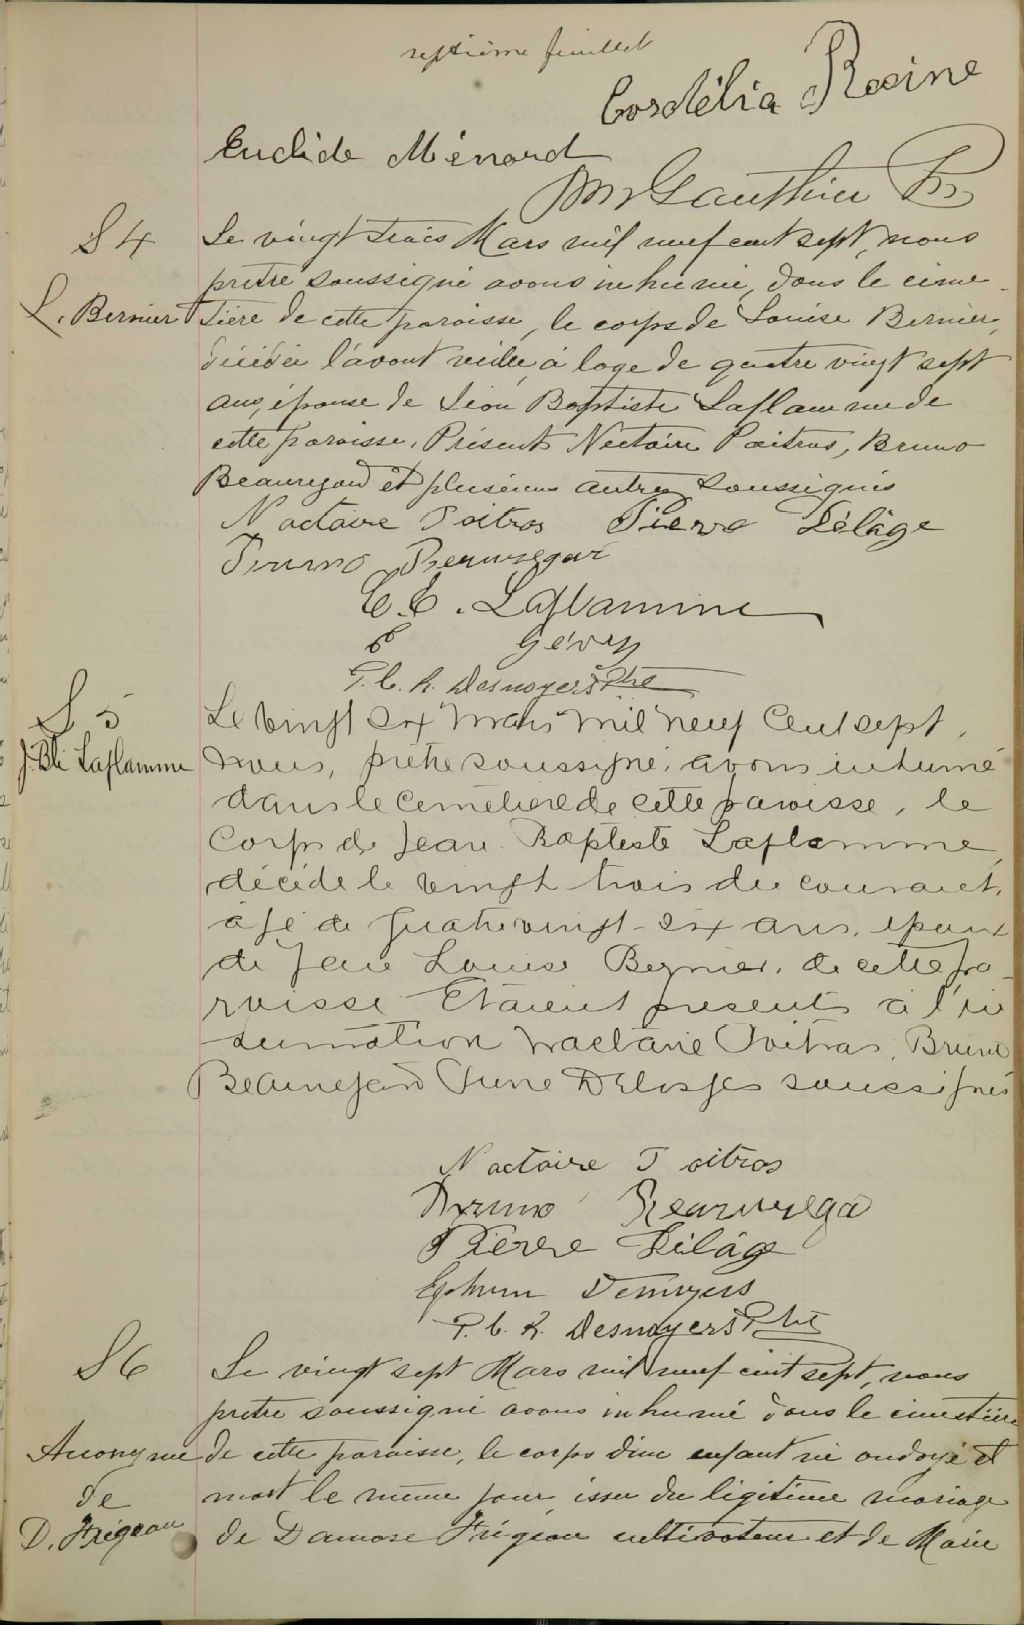 septième feuillet
Cordélia Racine
Euclide Ménard
Gauthier Ptr
S 4
Le vingt trois Mars mil neuf cent sept, nous
prêtre soussigné avons inhumé, dans le cime-
L. Bernier
tière de cette paroisse, le corps de Louise Bernier,
décédée l'avant veille, à l'age de quatre vingt sept
ans, épouse de Jean Baptiste Laflamme de
cette paroisse. Présents Nectaire Poitras, Bruno
Beauregard et plusieurs autres soussignés
Nactaire Poitras Pierre Délâge
Bruno Beauregar
E. E. Laflamme
E Gévry
P. C. R. Desnoyers Ptre
S 5
Le vingt six mars mil neuf cent sept,
J. Bte Laflamme
nous, prêtre soussigné, avons inhumé
dans le cemetiere de cette paroisse, le
corps de Jean Baptiste Laflamme,
décédé le vingt trois du courant,
âgé de quatre vingt-six ans, epoux
de feue Louise Bernier, de cette pa-
roisse Etaient presents à l'in
humation Nactaire Poitras, Bruno
Beauregard Pierre Delages soussignés
Nactaire Poitras
Bruno Beauregad
Pierre Délâge
Ephrem Desnoyers
P. C. R. Desnoyers Ptre
S 6
Le vingt sept Mars mil neuf cent sept, nous
prêtre soussigné avons inhumé dans le cimetière
Anonyme
de cette paroisse, le corps d'un enfant né ondoyé et
de
mort le même jour issu du légitime mariage
D. Frégeau
de Damase Frégeau cultivateur et de Marie